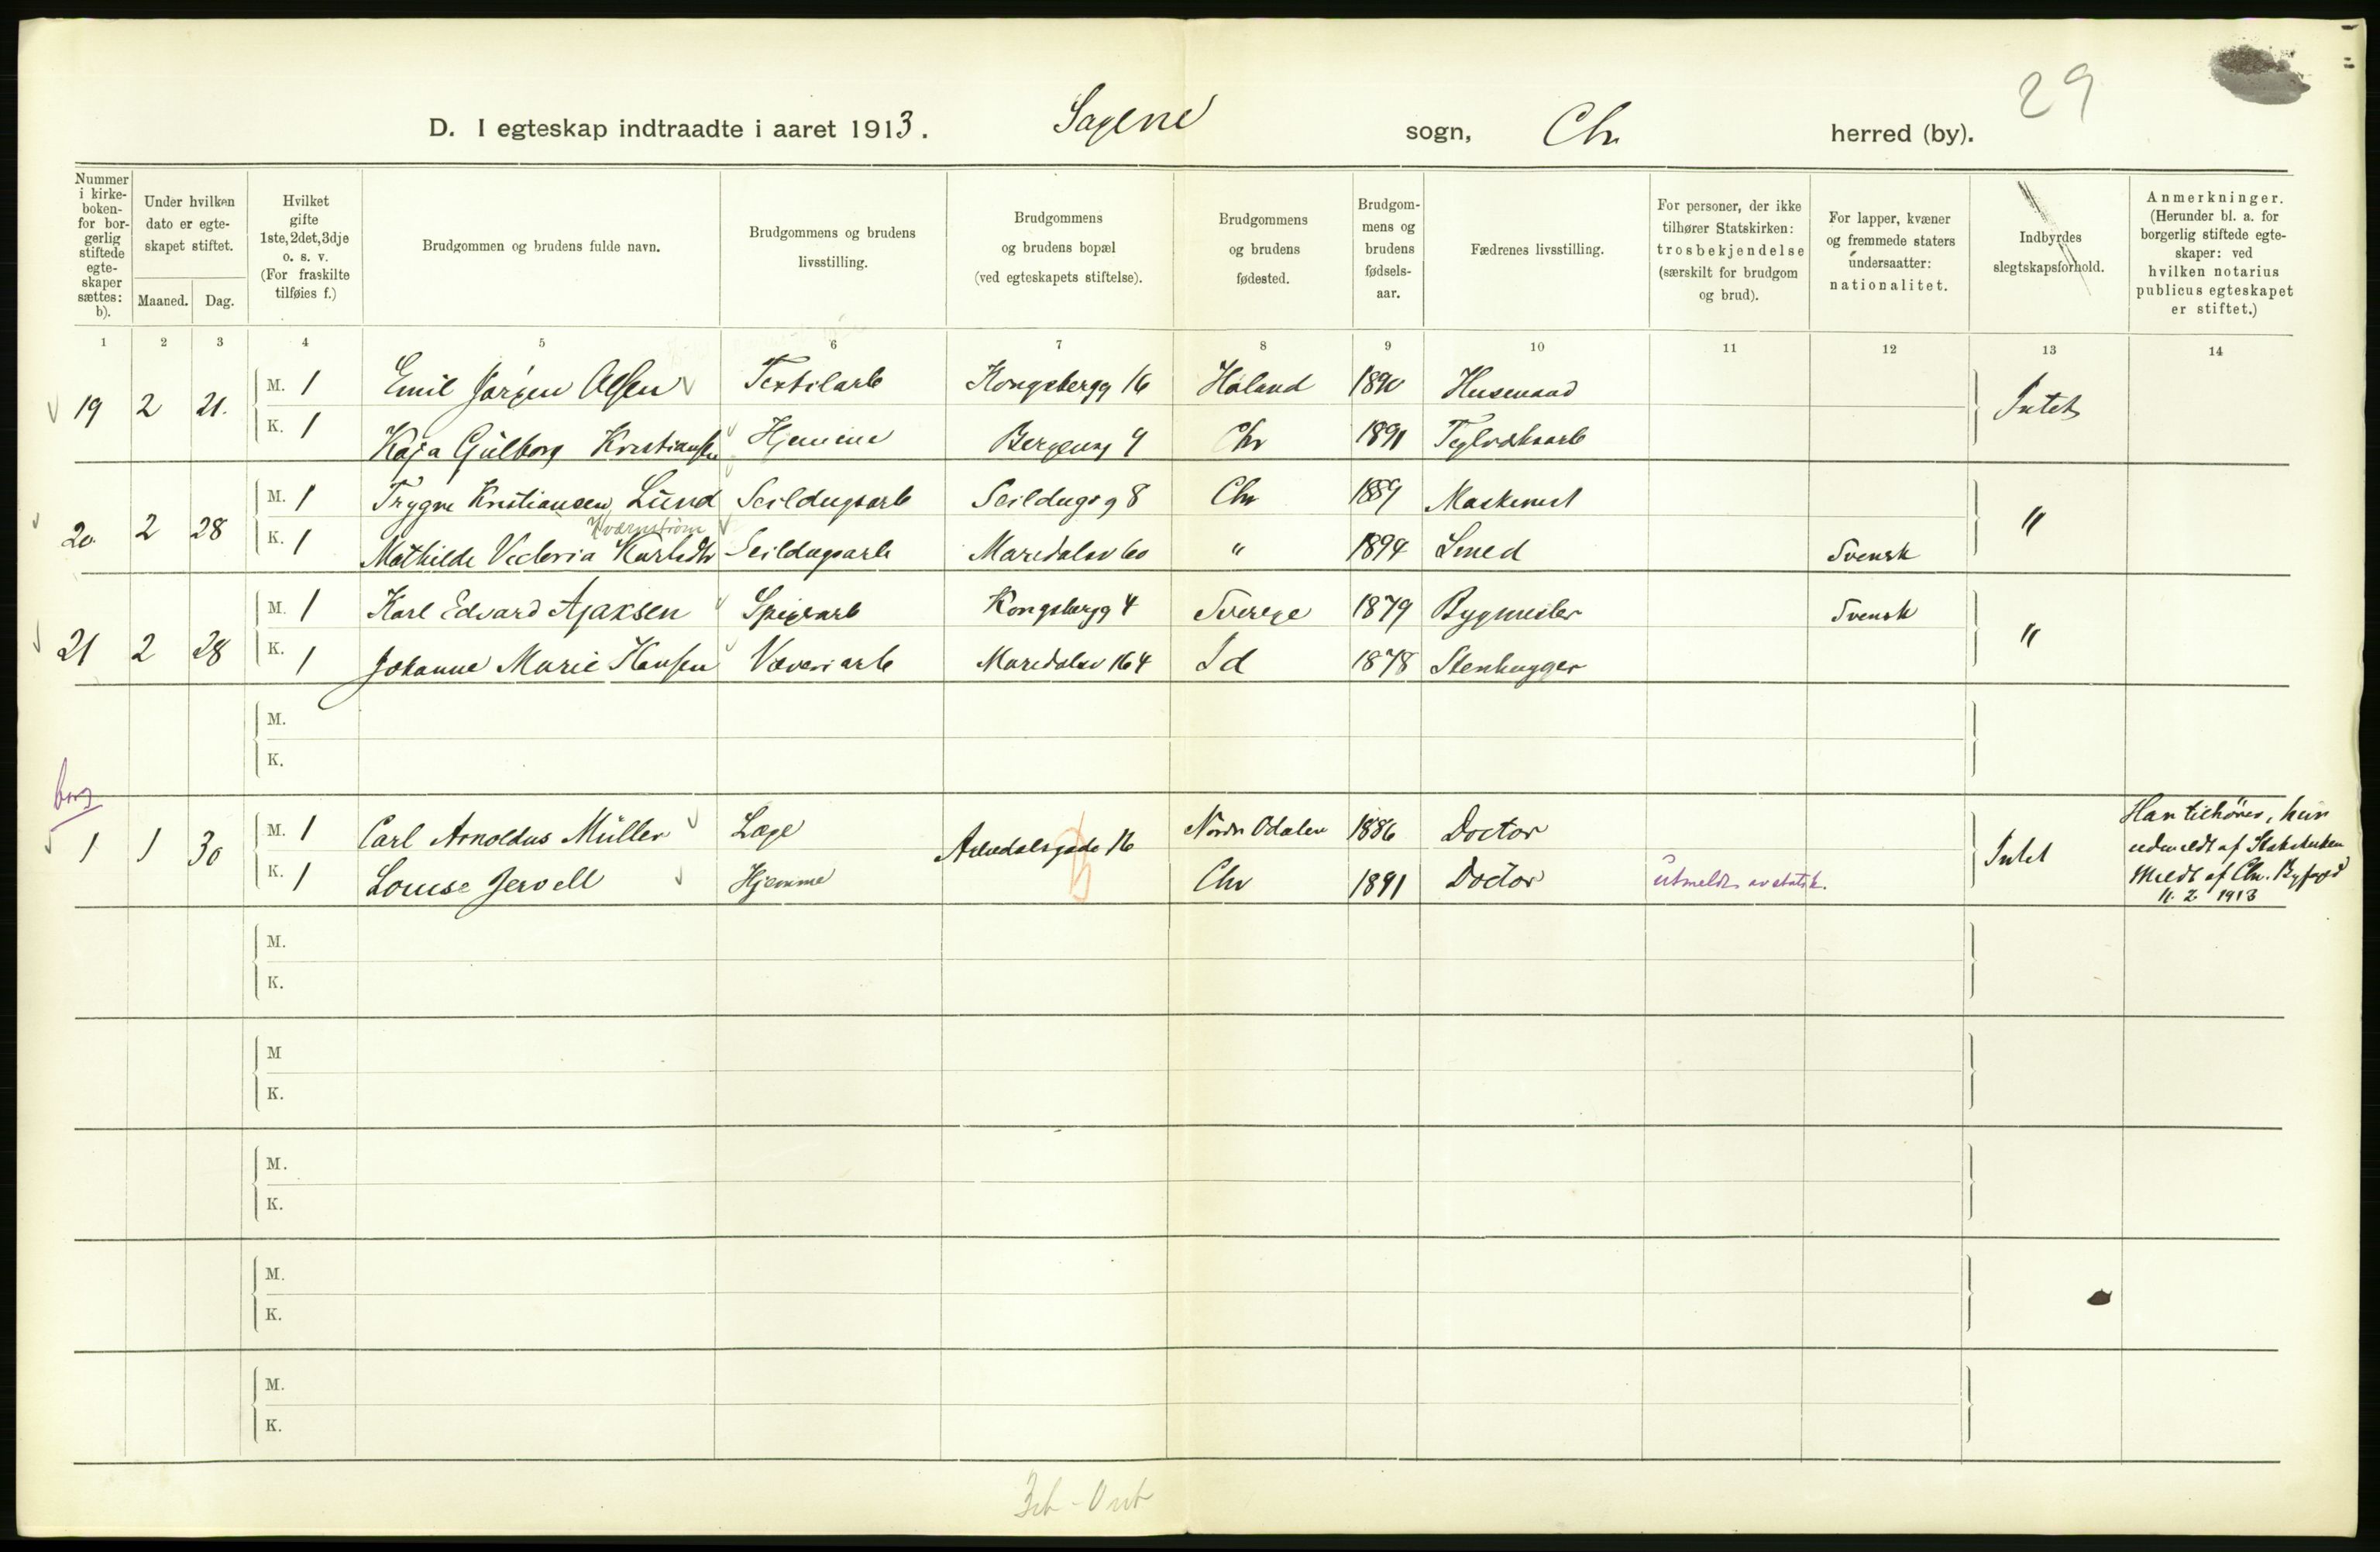 29
D. I egteskap indtraadte i aaret 1913. Sagene sogn, Chr herred (by).
Nummer i kirke-boken- for bor-gerlig stiftede egte-skaper sættes: b).
Under hvilken dato er egte-skapet stiftet.
Maaned. Dag.
Hvilket gifte 1ste, 2det, 3dje o. s. v. (For fraskilte tilføies f.)
Brudgommen og brudens fulde navn.
Brudgommens og brudens livsstilling.
Brudgommens og brudens bopæl (ved egteskapets stiftelse).
Brudgommens og brudens fødested.
Brudgom-mens og brudens fødsels-aar.
Fædrenes livsstilling.
For personer, der ikke tilhører Statskirken: trosbekjendelse (særskilt for brudgom og brud).
For lapper, kvæner og fremmede staters undersaatter: nationalitet.
Indbyrdes slegtskapsforhold.
Anmerkninger. (Herunder bl. a. for borgerlig stiftede egte-skaper: ved hvilken notarius publicus egteskapet er stiftet.)
1 2 3 4 5 6 7 8 9 10 11 12 13 14
19 2 21. M. 1 Emil Jørgen Olsen Textilarb Kongsbergg 16 Høland 1890 Husmand Intet
K. 1 Kaja Gulborg Kristiansen Hjemme Bergeng 9 Chr 1891 Teglverksarb
20 2 28 M. 1 Trygve Kristiansen Lund Seildugsarb Seildugsg 8 Chr 1889 Maskinist "
Kværnstrøm
K. 1 Mathilde Victoria Karlsdtr Seildugsarb Maridalsv 60 " 1894 Smed Svensk
21 2 28 M. 1 Karl Edvard Ajaksen Spigerarb Kongsbergg 4 Sverige 1879 Bygmester Svensk "
K. 1 Johanne Marie Hansen Væveriarb Maridalsv 164 Id 1878 Stenhugger
M.
K.
borg
1 1 30 M. 1 Carl Arnoldus Müller Læge Arendalsgade 16 Nordr Odalen 1886 Doctor Intet
K. 1 Louise Jervell Hjemme Chr 1891 Doctor utmeldt av statsk.
Han tilhører, hun
udmeldt af Statskirken
Meldt af Chr. Byfoged
11. 2 1913
M.
K.
M
K.
M.
K.
M.
K.
M.
K.